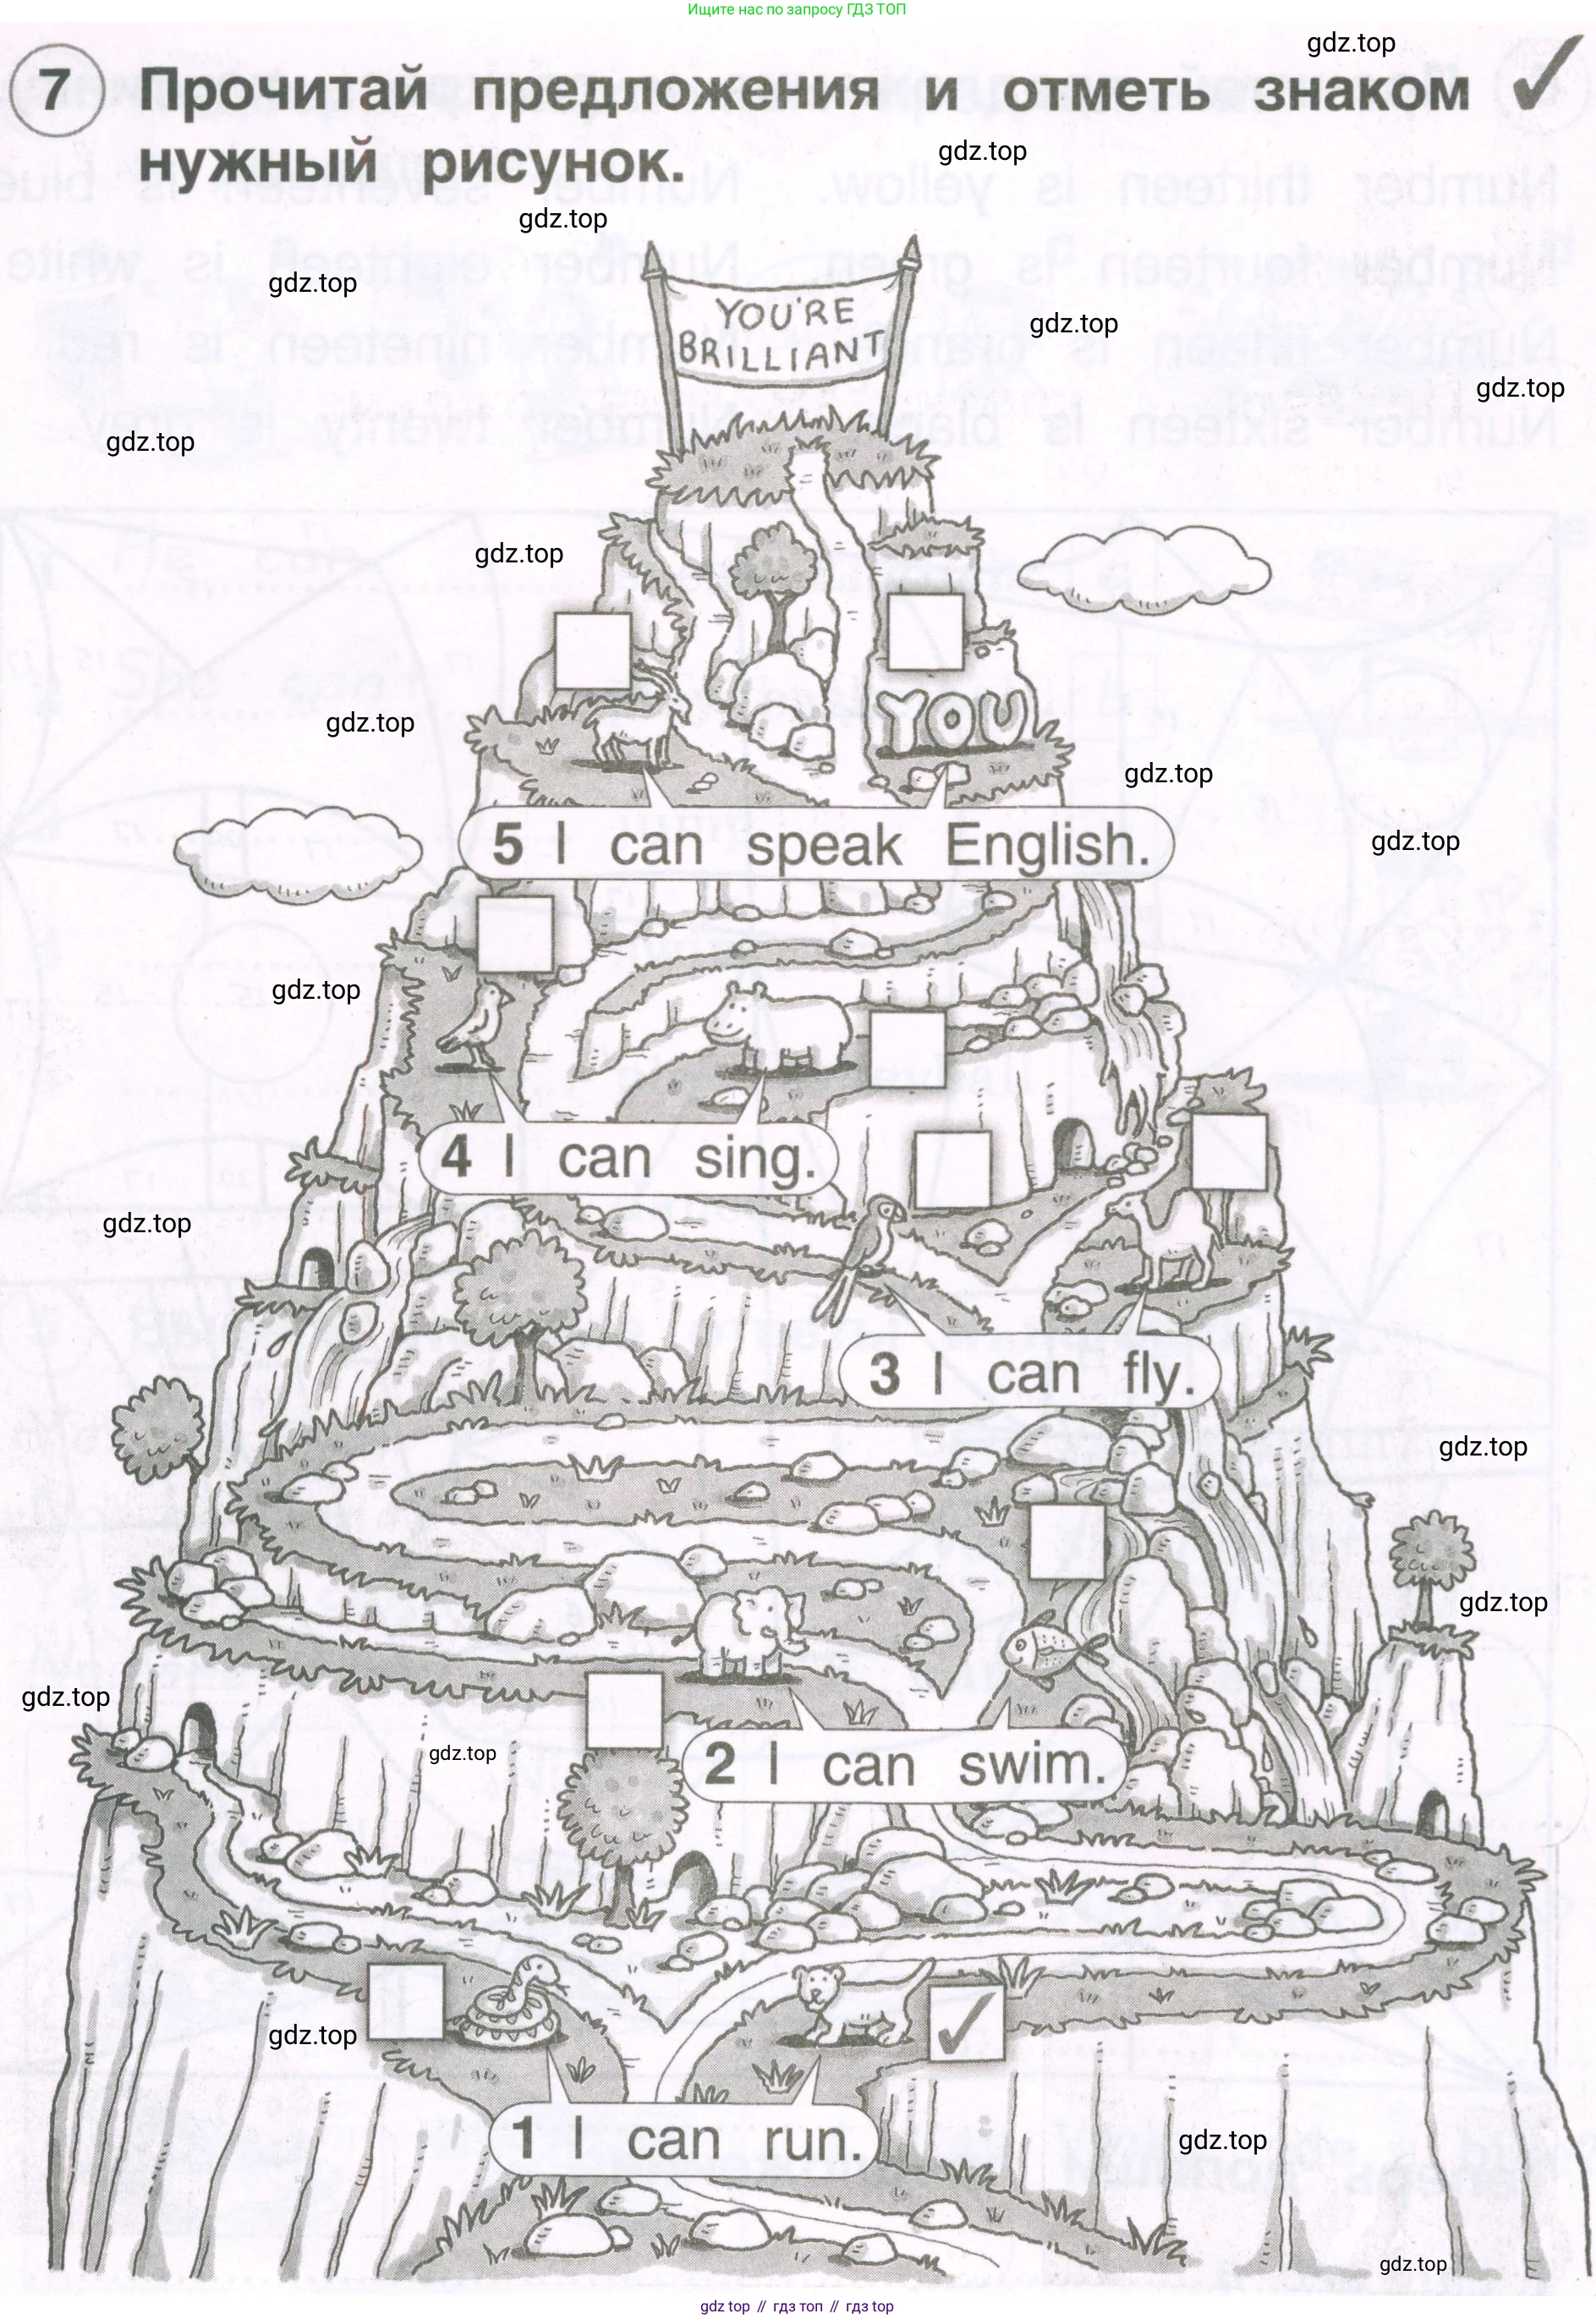 Ищите нас по запросу ГДЗ ТОП
gdz.top
7 Прочитай предложения и отметь знаком ✓
gdz.top
нужный рисунок.
gdz.top
gdz.top
YOU'RE
BRILLIANT
gdz.top
gdz.top
gdz.top
gdz.top
YOU
gdz.top
gdz.top
5 I can speak English.
gdz.top
gdz.top
4 I can sing.
gdz.top
3 I can fly.
gdz.top
gdz.top
gdz.top
gdz.top
2 I can swim.
✓
gdz.top
1 I can run.
gdz.top
gdz.top
gdz top // гдз топ // гдз top